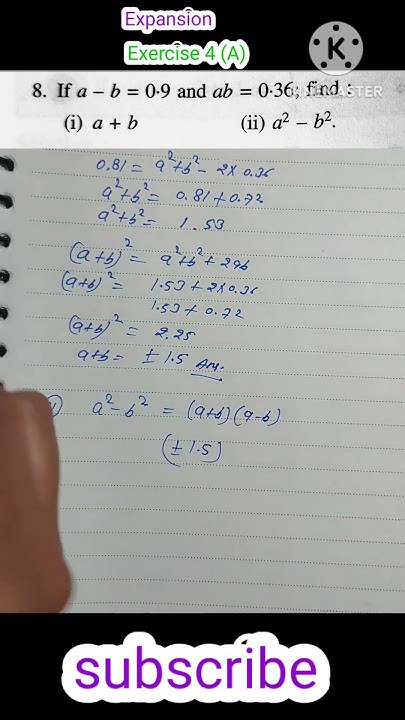 Expansion
Exercise 4 (A)
8. If a − b = 0·9 and ab = 0·36; find :
(i) a + b (ii) a² − b².
0.81 = a²+b²- 2×0.36
a²+b²= 0.81+0.72
a²+b²= 1.53
(a+b)²= a²+b²+2ab
(a+b)²= 1.53+2×0.36
1.53+0.72
(a+b)² = 2.25
a+b= ±1.5 Ans.
a²-b² = (a+b)(a-b)
(±1.5)
subscribe